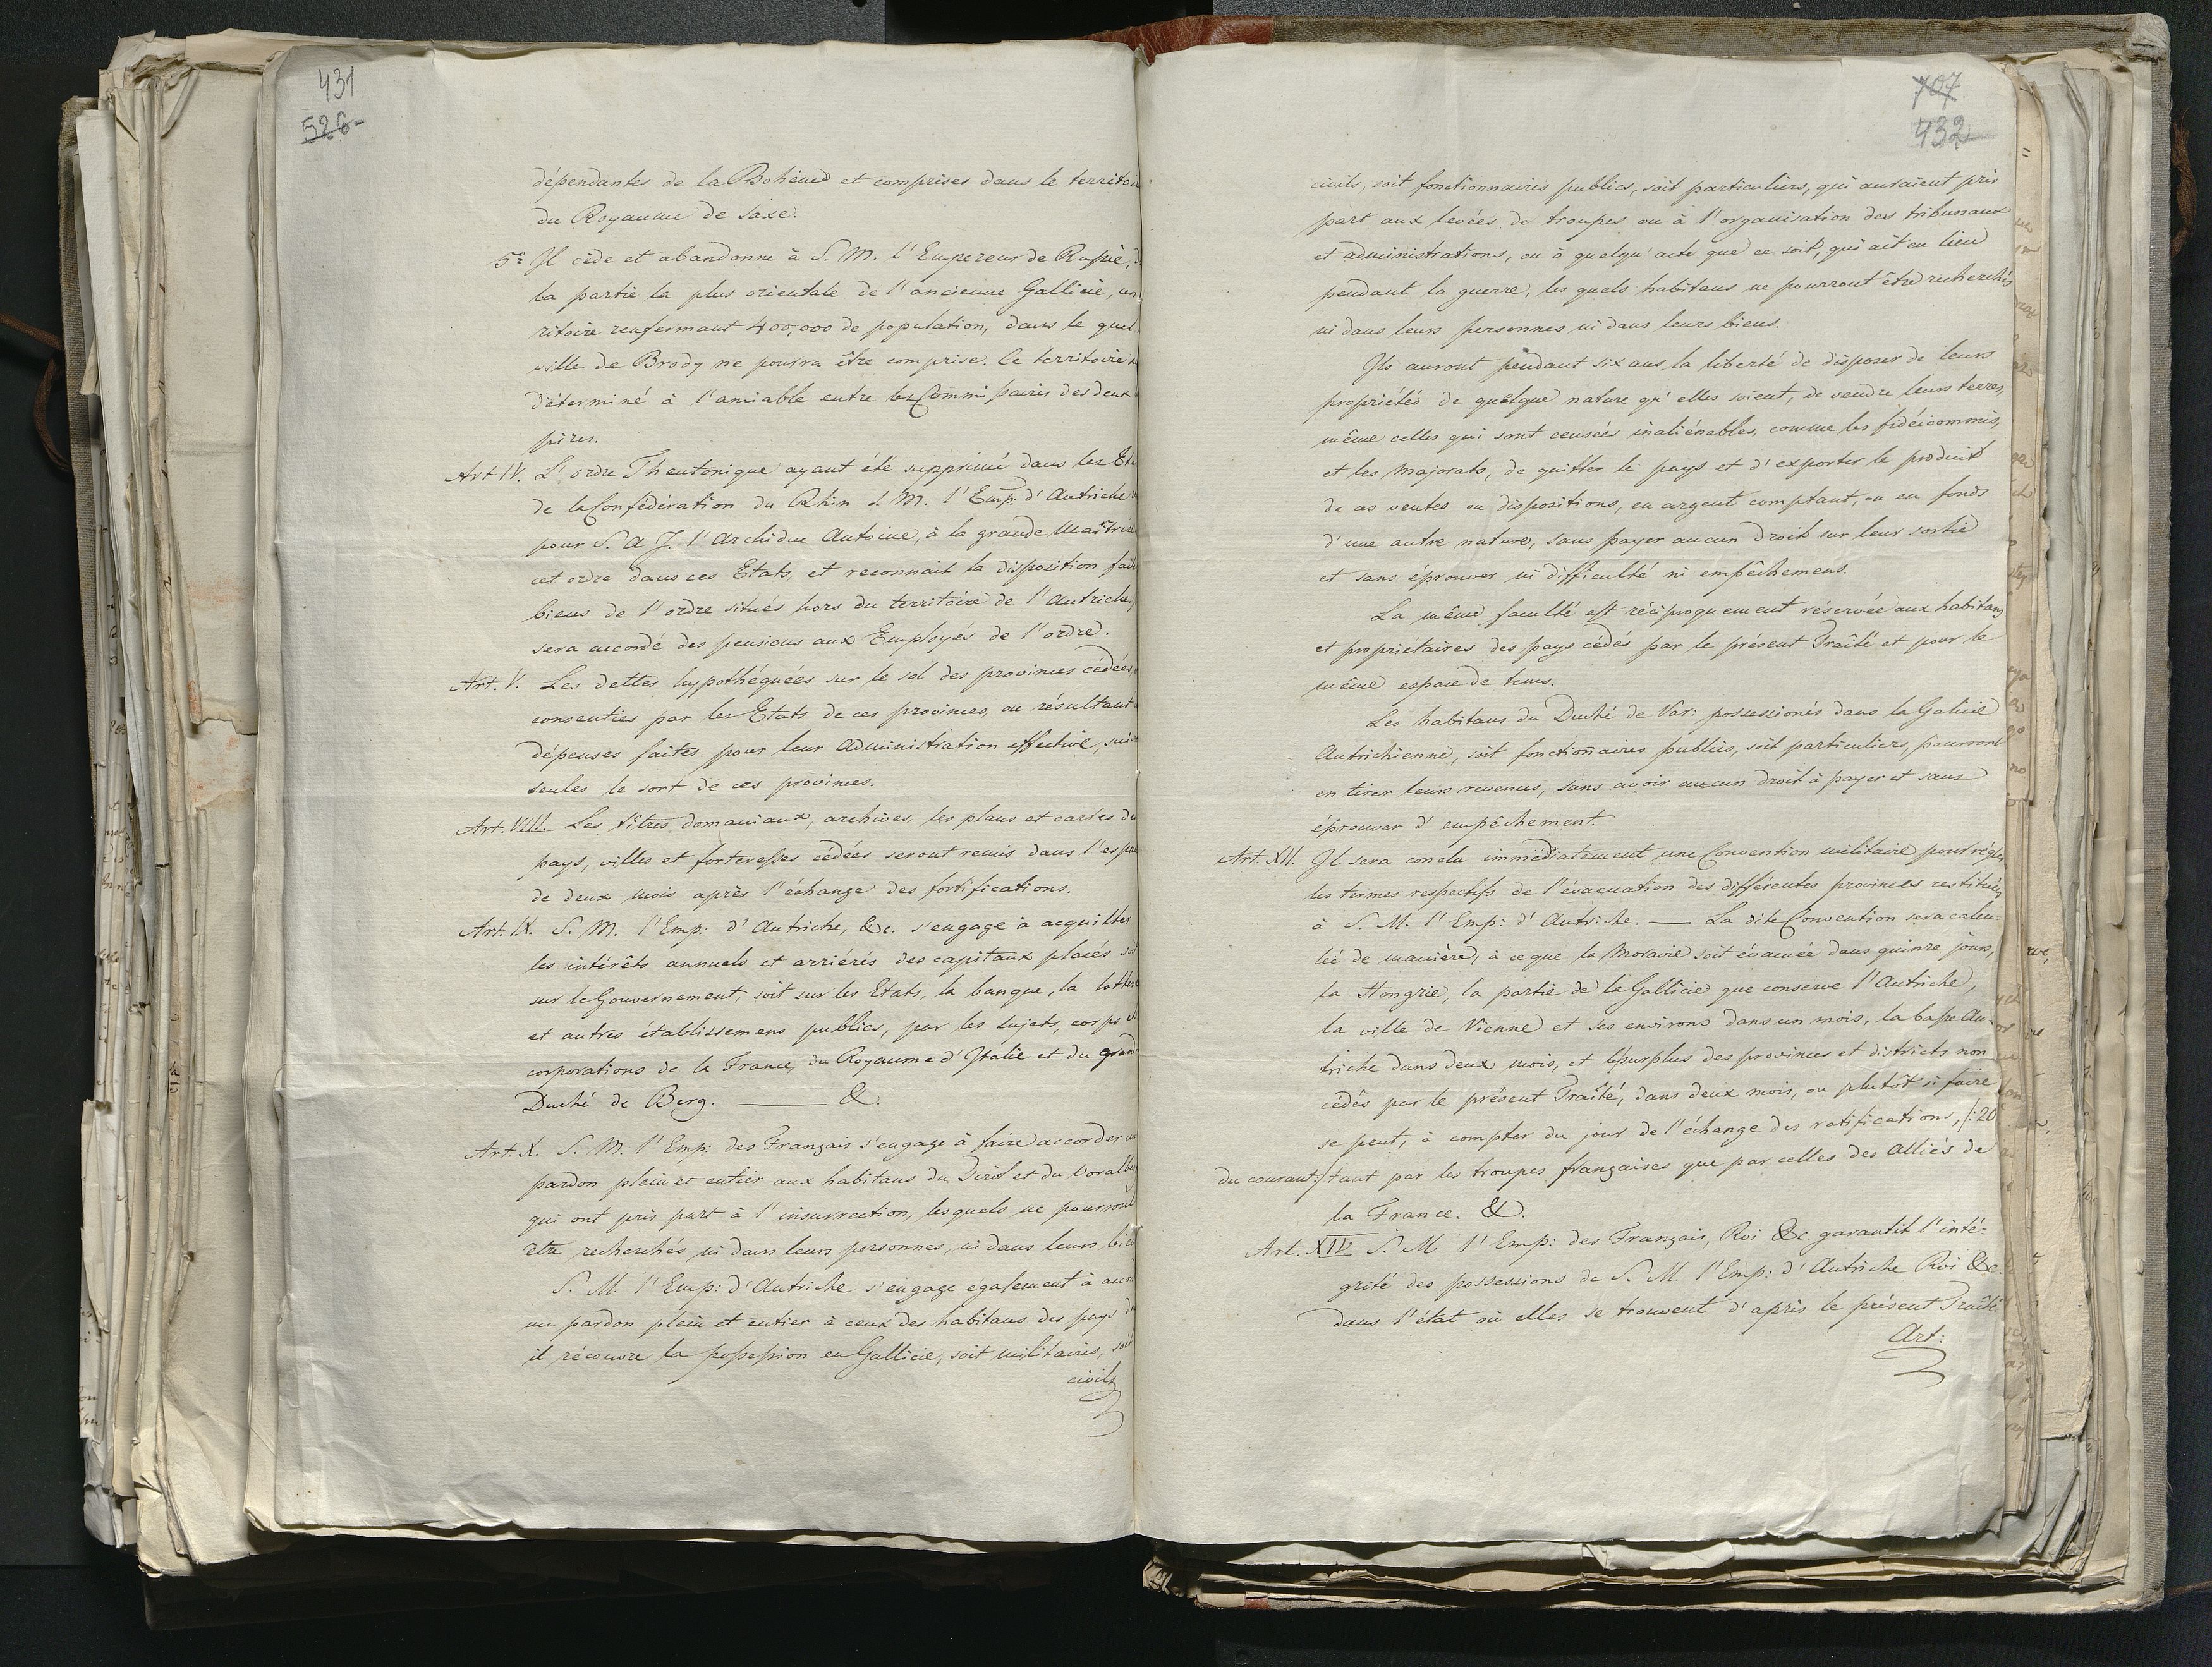 431
526
dépendantes de la Bohéme et comprises dans le territoi
du Royaume de Saxe.
5º Il cède et abandonne à S. M. l'Empereur de Russie, d
la partie la plus orientale de l'ancienne Gallicie, un
ritoire renfermant 400,000 de population, dans le quel
ville de Brody ne pourra être comprise. Ce territoire
déterminé à l'amiable entre les Commissaires des deux
pires.
Art IV. L'ordre Theutonique ayant été supprimé dans les Et
de la Confédération du Rhin S. M. l'Emp: d'Autriche
pour S. A. J. l'Archiduc Antoine, à la grande Maîtri
cet ordre dans ces Etats, et reconnait la disposition fai
biens de l'ordre situés hors du territoire de l'Autriche,
sera accordé des pensions aux Employés de l'ordre.
Art. V. Les dettes hypothéquées sur le sol des provinces cédées,
consenties par les Etats de ces provinces, ou résultant
dépenses faites pour leur Administration effective, sui
seules le sort de ces provinces.
Art. VIII. Les titres domaniaux, archives, les plans et cartes de
pays, villes et forteresses cédées seront remis dans l'espa
de deux mois après l'échange des fortifications.
Art. IX. S. M. l'Emp: d'Autriche, &c. s'engage à acquitter
les intérêts annuels et arriérés des capitaux placés soi
sur le Gouvernement, soit sur les Etats, la banque, la lotteri
et autres établissemens publics, par les sujets, corps et
corporations de la France, du Royaume d'Italie et du grand
Duché de Berg. — &.
Art. X. S. M. l'Emp: des Français s'engage à faire accorder un
pardon plein et entier aux habitans du Tirol et du Voralb
qui ont pris part à l'insurrection, lesquels ne pourront
etre recherchés ni dans leurs personnes, ni dans leurs bie
S. M. l'Emp: d'Autriche s'engage également à acco
un pardon plein et entier à ceux des habitans des pays do
il récouvre la possession en Gallicie, soit militaires, soit
civils
707
432
civils, soit fonctionnaires publics, soit particuliers, qui auraient pris
part aux levées de troupes ou à l'organisation des tribunaux
et administrations, ou à quelqu'acte que ce soit, qui ait eu lieu
pendant la guerre, les quels habitans ne pourront être recherchés
ni dans leurs personnes ni dans leurs biens.
Ils auront pendant six ans la liberté de disposer de leurs
propriétés de quelque nature qu'elles soient, de vendre leurs terres,
même celles qui sont censées inaliénables, comme les fidéicommis,
et les Majorats, de quitter le pays et d'exporter le produit
de ces ventes ou dispositions, en argent comptant, ou en fonds
d'une autre nature, sans payer aucun droit sur leur sortie
et sans éprouver ni difficulté ni empêchemens.
La même faculté est réciproquement reservée aux habitans
et propriétaires des pays cédés par le présent Traîté et pour le
même espace de tems.
Les habitans du Duché de Var: possessionés dans la Galicie
Autrichienne, soit fonctioñaires publics, soit particuliers, pourront
en tirer leurs revenus, sans avoir aucun droit à payer et sans
éprouver d'empêchement.
Art. XII. Il sera conclu immédiatement une Convention militaire pour régler
les termes respectifs de l'évacuation des différentes provinces restituées
à S. M. l'Emp: d'Autriche. — La dite Convention sera calcu-
lée de manière, à ce que la Moravie soit évacuée dans quinze jours,
la Hongrie, la partie de la Gallicie que conserve l'Autriche,
la ville de Vienne et ses environs dans un mois, la basse Au-
triche dans deux mois, et le surplus des provinces et districts non
cédés par le présent Traîté, dans deux mois, ou plutôt si faire
se peut, à compter du jour de l'échange des ratifications, /:20
du courant:/ tant par les troupes françaises que par celles des Alliés de
la France. &.
Art. XIV. S. M. l'Emp: des Français, Roi &c. garantit l'inté-
grité des possessions de S. M. l'Emp: d'Autriche Roi &c.
dans l'état où elles se trouvent d'après le présent Traîté
Art: